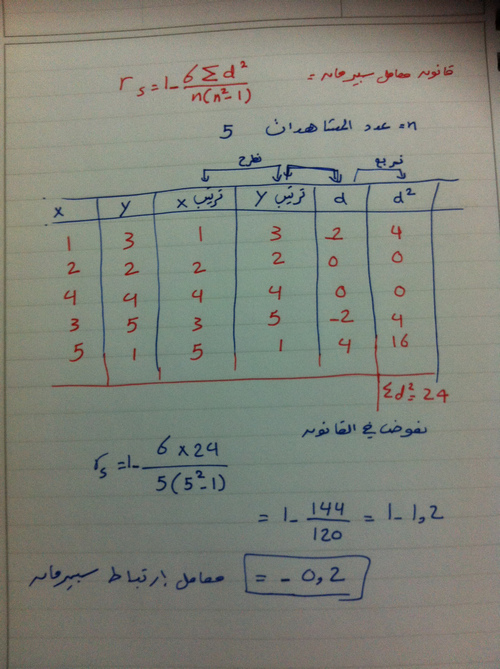 قانون معامل سبيرمان = r s = 1 - 6 Σ d² / n(n²-1)
n = عدد المشاهدات 5
طرح تربيع
x y ترتيب x ترتيب y d d²
1 3 1 3 -2 4
2 2 2 2 0 0
4 4 4 4 0 0
3 5 3 5 -2 4
5 1 5 1 4 16
Σd² = 24
نعوض في القانون
r s = 1 - 6 × 24 / 5(5²-1)
= 1 - 144 / 120 = 1 - 1,2
= - 0,2 معامل إرتباط سبيرمان